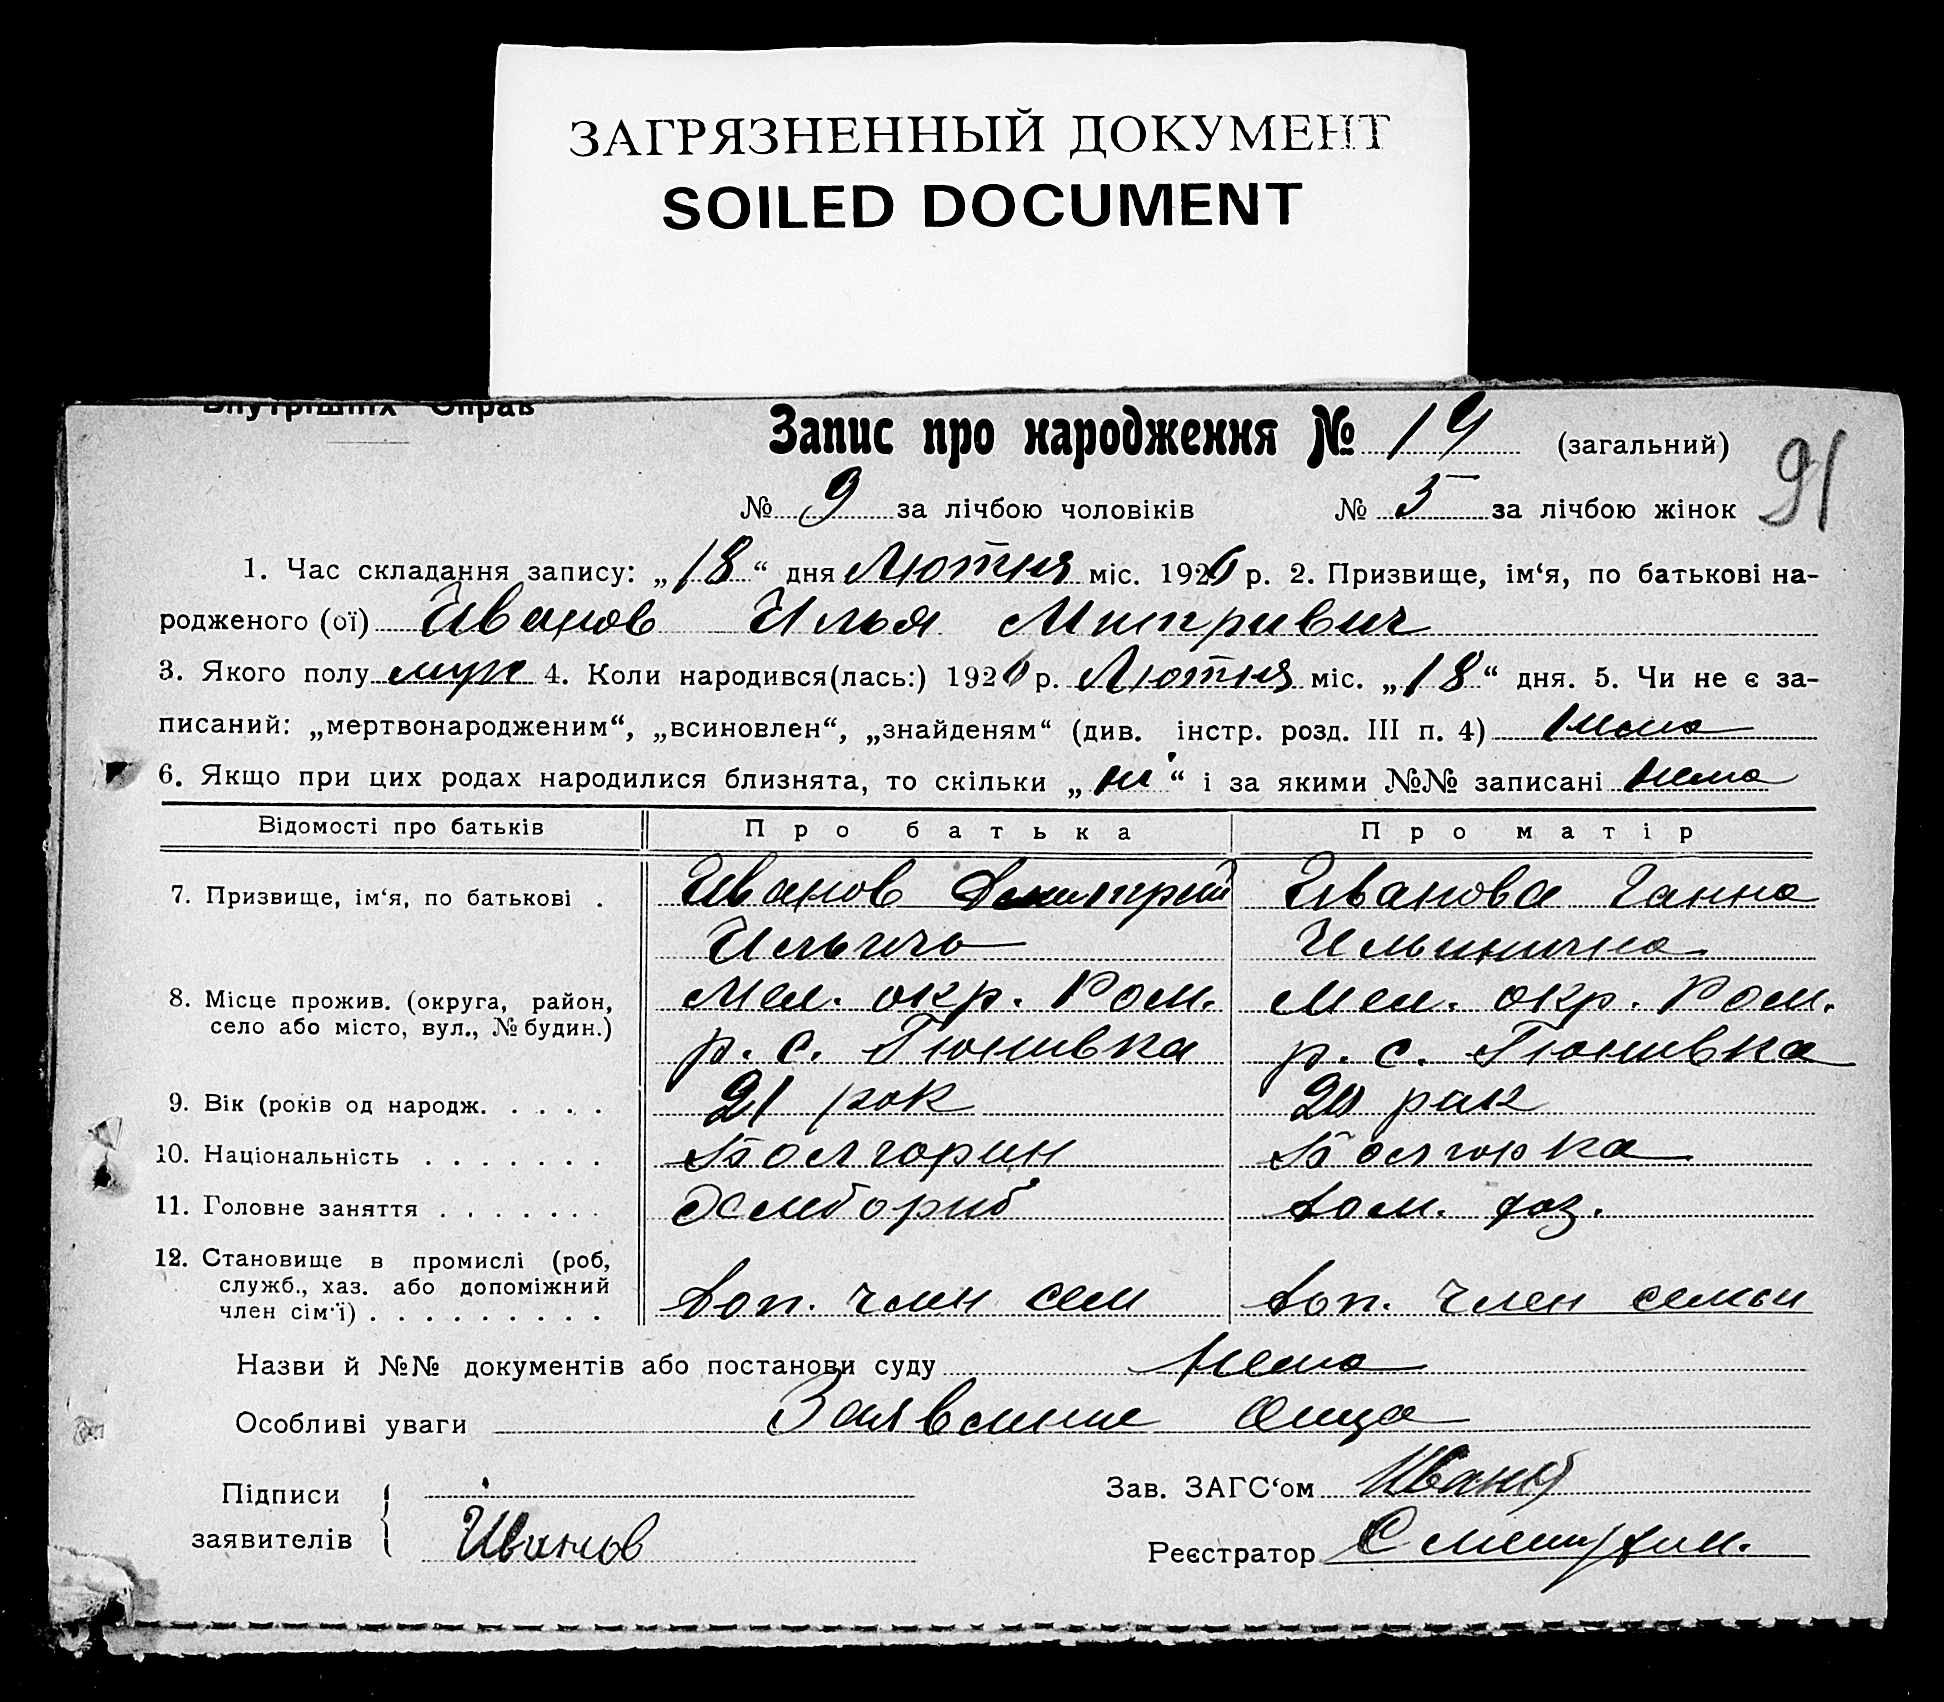 ЗАГРЯЗНЕННЫЙ ДОКУМЕНТ
SOILED DOCUMENT
Внутрішніх Справ
Запис про народження № 14 (загальний)
91
№ 9 за лічбою чоловіків № 5 за лічбою жінок
1. Час складання запису: „18“ дня Лютня міс. 1926 р. 2. Призвище, ім‘я, по батькові на-
родженого (ої) Иванов Илья Митривич
3. Якого полу муж 4. Коли народився(лась:) 1926 р. Лютня міс. „18“ дня. 5. Чи не є за-
писаний: „мертвонародженим“, „всиновлен“, „знайденям“ (див. інстр. розд. III п. 4) нема
6. Якщо при цих родах народилися близнята, то скільки „ні“ і за якими №№ записані нема
Відомості про батьків Про батька Про матір
7. Призвище, ім‘я, по батькові . Иванов Дмитрий Иванова Ганна
Ильичь Ильинична
8. Місце прожив. (округа, район, Мел. окр. Ром. Мел. окр. Ром.
село або місто, вул., № будин.) р. с. Гюнивка р. с. Гюнивка
9. Вік (років од народж. . . . . 21 рок 20 рик
10. Національність . . . . . . . Болгорин Болгорка
11. Головне заняття . . . . . . . Хлебориб дом. хоз.
12. Становище в промислі (роб,
служб., хаз. або допоміжний
член сім‘ї) . . . . . . . . . Доп. член сем Доп. член семьи
Назви й №№ документів або постанови суду нема
Особливі уваги Заявление Отца
Підписи Зав. ЗАГС‘ом
заявителів Иванов
Реєстратор